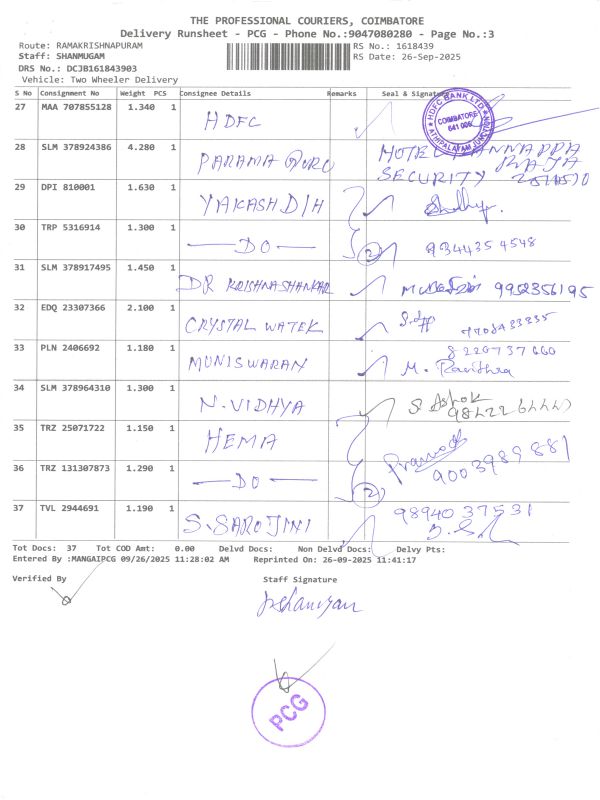 THE PROFESSIONAL COURIERS, COIMBATORE
Delivery Runsheet - PCG - Phone No.:9047080280 - Page No.:3
Route: RAMAKRISHNAPURAM RS No.: 1618439
Staff: SHANMUGAM RS Date: 26-Sep-2025
DRS No.: DCJB161843903
Vehicle: Two Wheeler Delivery
S No Consignment No Weight PCS Consignee Details Remarks Seal & Signature
27 MAA 707855128 1.340 1 HDFC
HDFC BANK LTD
COIMBATORE
641 006
28 SLM 378924386 4.280 1 PARAMA GURU
SECURITY
29 DPI 810001 1.630 1 YAKASH DIH
30 TRP 5316914 1.300 1 DO 2 9344354548
31 SLM 378917495 1.450 1 DR KRISHNASHANKAR 9952356195
32 EDQ 23307366 2.100 1 CRYSTAL WATEK
33 PLN 2406692 1.180 1 MUNISWARAN 8220737660
M. Pavithra
34 SLM 378964310 1.300 1 N. VIDHYA S. Ashok
35 TRZ 25071722 1.150 1 HEMA
36 TRZ 131307873 1.290 1 DO 2 9003989881
37 TVL 2944691 1.190 1 S. SAROJINI 9894037531
Tot Docs: 37 Tot COD Amt: 0.00 Delvd Docs: Non Delvd Docs: Delvy Pts:
Entered By :MANGAIPCG 09/26/2025 11:28:02 AM Reprinted On: 26-09-2025 11:41:17
Verified By Staff Signature
PCG